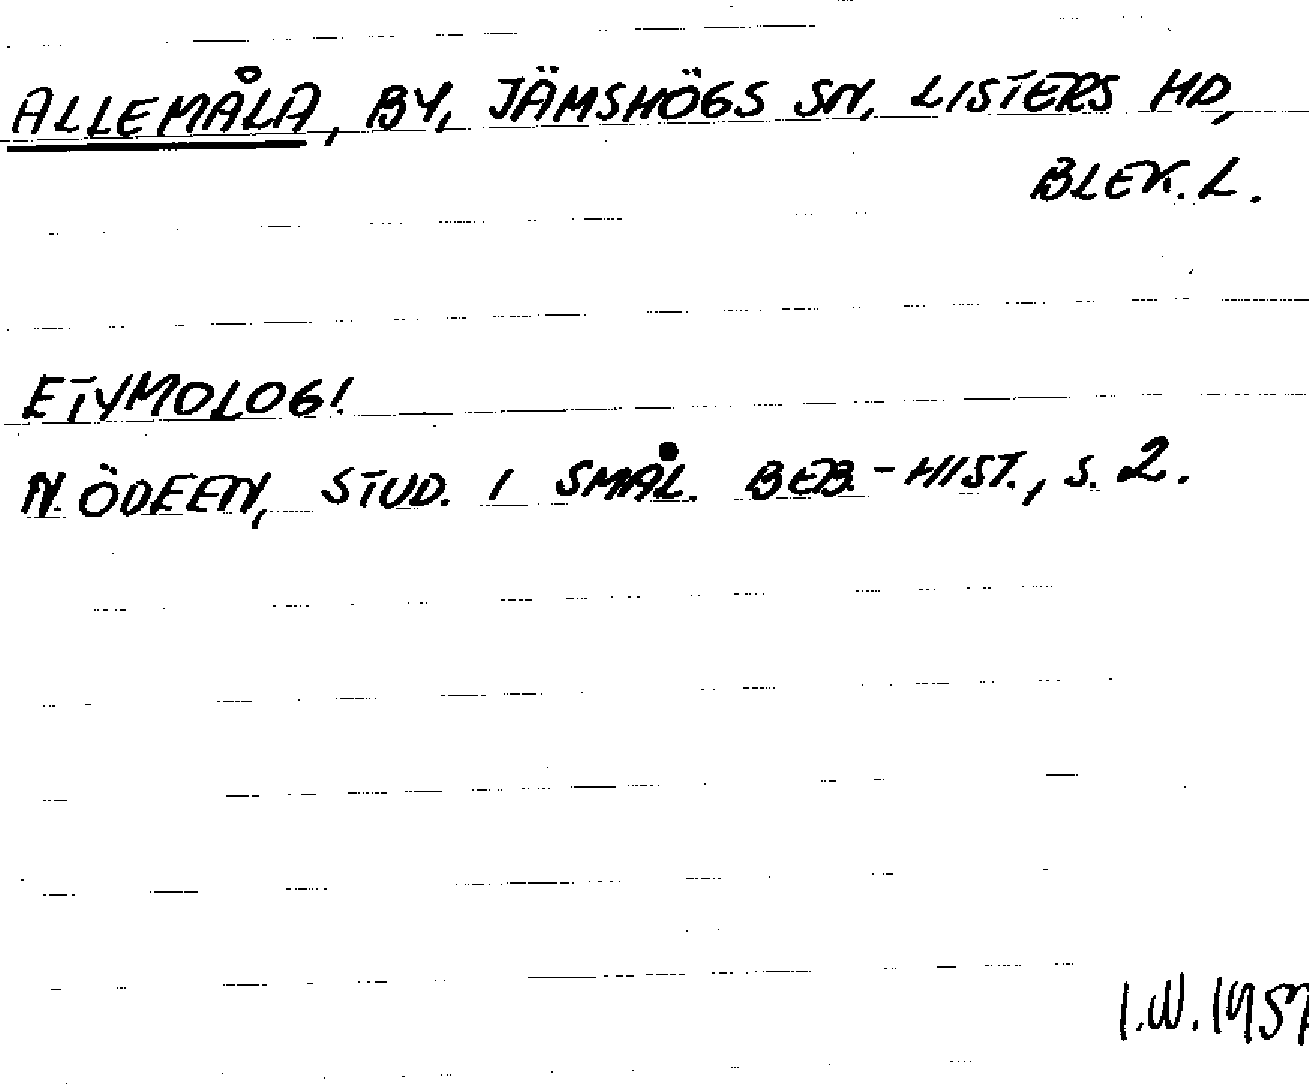 ALLEMÅLA, BY, JÄMSHÖGS SN, LISTERS HD,
BLEK. L.
ETYMOLOGI.
N. ÖDEEN, STUD. I SMÅL. BEB.-HIST., S. 2.
I.W. 1957